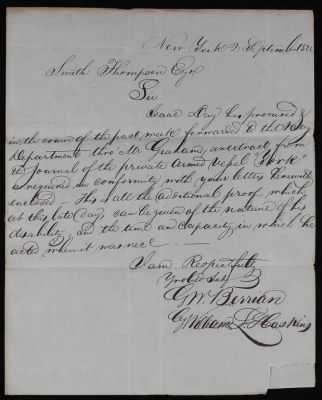 New York 2 September 18
Smith Thompson Esqr
Sir
Isaac Day has procured &
in the course of the past week forwarded to the Navy
Department thro Mr Graham, an extract from
the Journal of the private Armed vessel "York"
as required in conformity with your letters herewith
enclosed - This is all the additional proof which
at this late day, can be given of the nature of his
disability, and the time and capacity in which he
acted when it was recd
I am Respectfully
Yr obed Svt
G W. Berrian
L Haskins